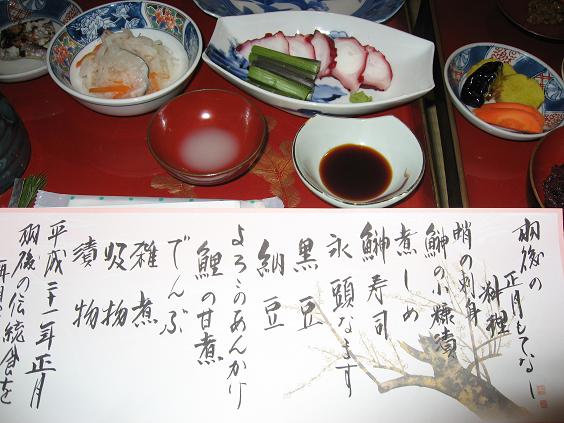 羽後の
正月もてなし
料理
蛸の刺身
鰰の小糠漬
煮しめ
鰰寿司
氷頭なます
黒豆
納豆
よろこのあんかけ
鯉の甘煮
でんぶ
雑煮
吸物
漬物
平成二十一年正月
羽後の伝統食を